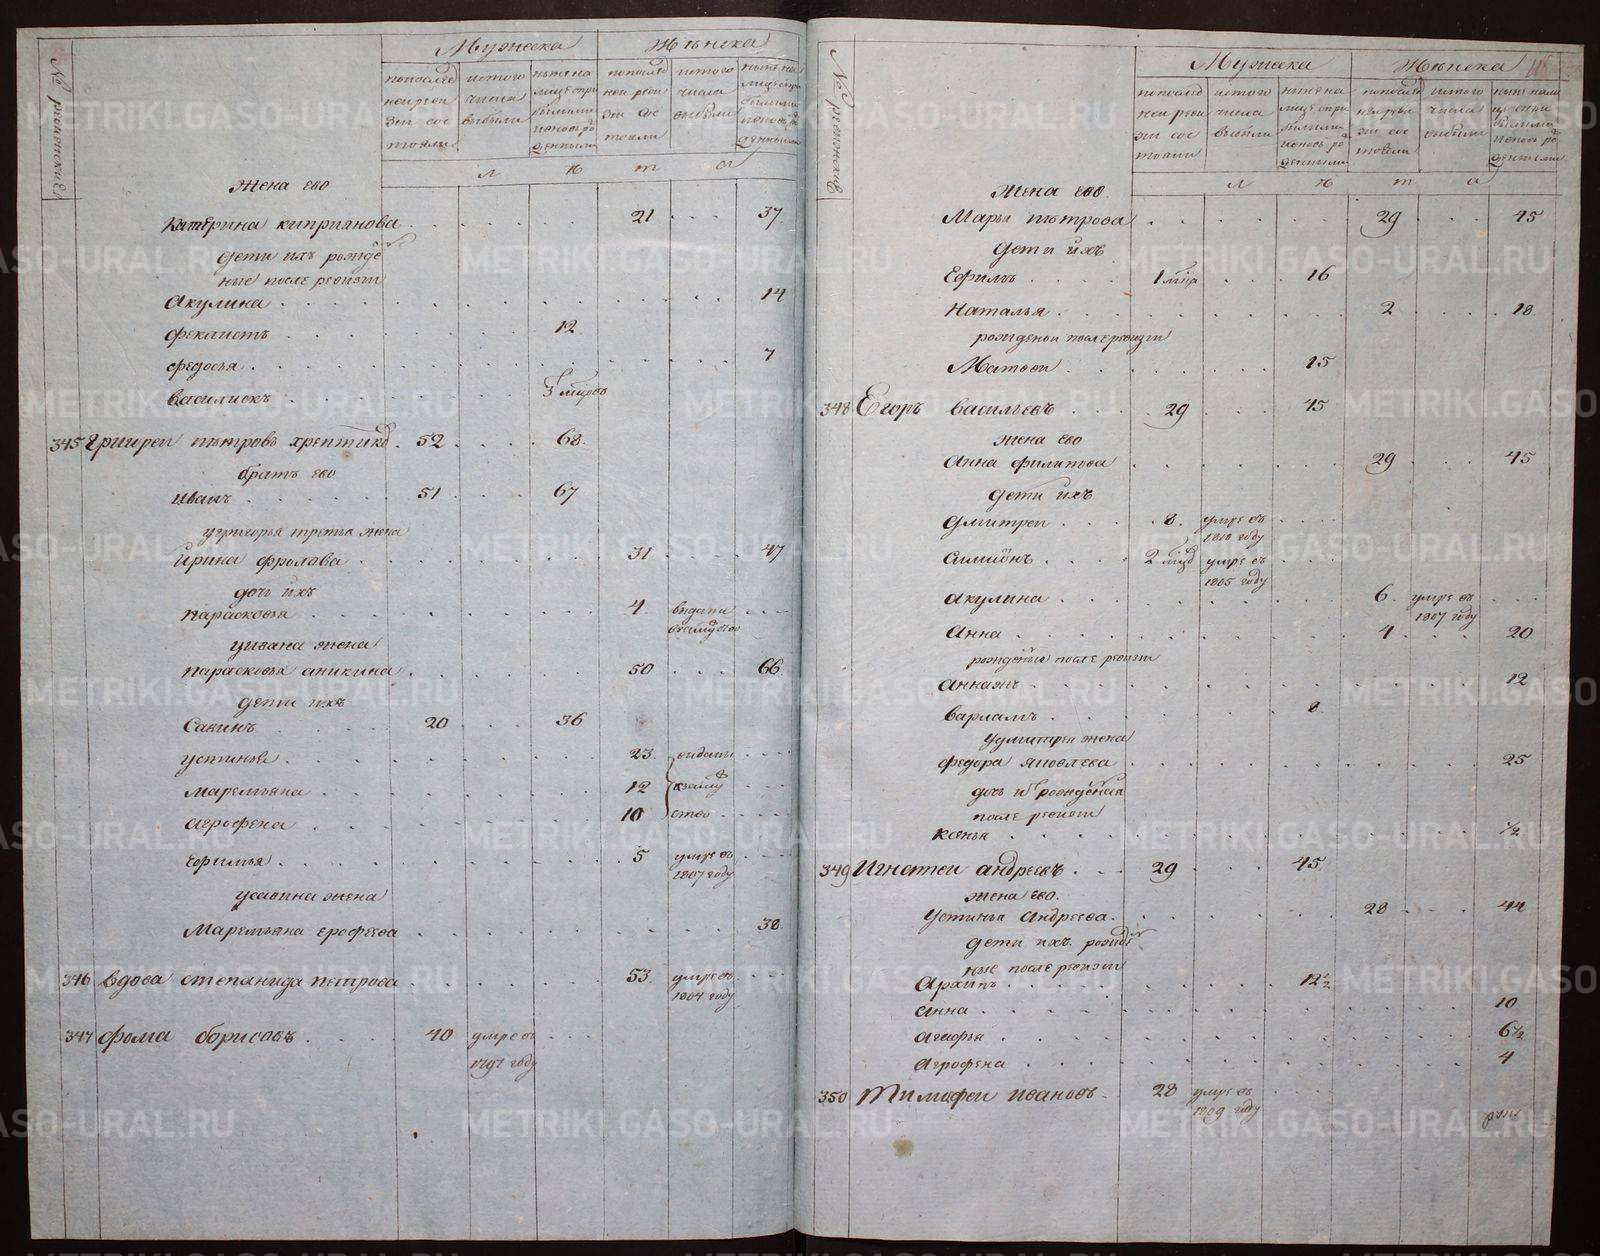 Мужеска Женска
№ ревижские
попослед ней реви зии сос тояли
ис того числа выбыли
ныне на лицо спри былыми и новь ро жденными
попослед ней реви зии сос тояли
ис того числа выбыли
ныне на лицо с при былыми и новь ро жденными
л е т а
Жена ево
Катерина киприянова 21 37
дети ихъ рожде
ные после ревизии
Акулина 14
Феклистъ 12
Федосья 7
Василискъ 3
345 Григореи петровъ хрептико 52 68
братъ ево
Иванъ 51 67
у григорья третья жена
Ирина Фролова 31 47
дочь ихъ
Парасковья 4 выдата
у ивана жена
Парасковья аникина 50 66
дети ихъ
Савинъ 20 36
устинья 23 выданы
маремьяна 12 взаму
агрофена 10 ство
Ефимья 5 умре въ
1807 году
у савина жена
Маремьяна ерофеева 38
346 вдова степанида петрова 53 умре въ
1804 году
347 Фома борисовъ 40 умре въ
1797 году
Мужеска Женска
№ ревижские
попослед ней реви зии сос тояли
ис того числа выбыли
ныне на лицо спри былыми и новь ро жденными
попослед ней реви зии сос тояли
ис того числа выбыли
ныне нали цо спри былыми и новь ро жденными
л е т а
Жена ево
Марья петрова 29 45
дети ихъ
Ефимъ 1 16
Наталья 2 18
рожденои после ревизии
Матвеи 15
348 Егоръ васильевъ 29 45
жена ево
Анна филипова 29 45
дети ихъ
дмитреи 8 умре въ
1810 году
Симионъ 2 умре въ
1805 году
Акулина 6 умре въ
1807 году
Анна 4 20
рожденые после ревизии
12
варламъ 8
у дмитрея жена
федора яковлева 25
дочь их рожденая
после ревизии
ксенья 1/2
349 Игнатеи андреевъ 29 45
жена ево
Устинья Андреева 28 44
дети ихъ рожде
ные после ревизии
Архипъ 12 1/2
Анна 10
Агафья 6 1/2
Агрофена 4
350 Тимофеи ивановъ 28 умре въ
1809 году